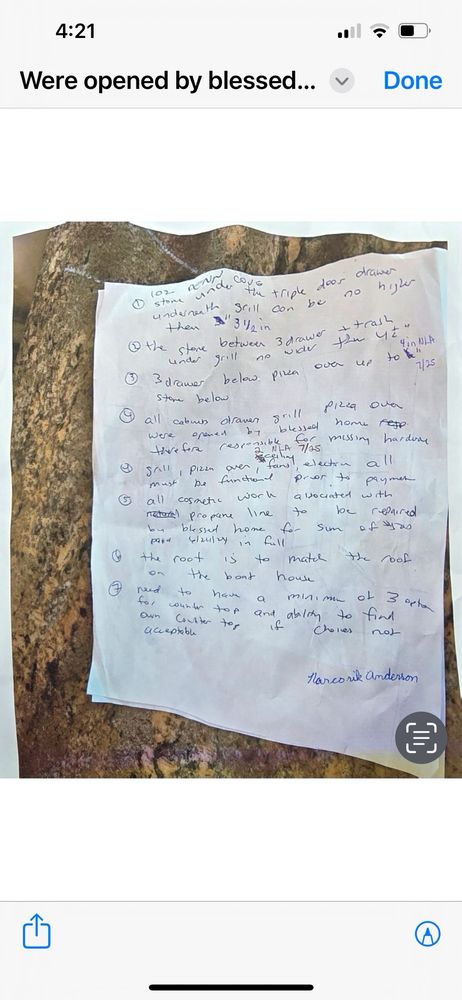 4:21
Were opened by blessed...
Done
① stone under the triple door drawer
underneath grill can be no higher
then 3 1/2 in
② the stone between 3 drawer + trash
under grill no wider then 4 1/2"
4 in NLA
7/25
③ 3 drawer below pizza oven up to
stone below
④ all cabins drawer grill pizza oven
were opened by blessed home
therefore responsible for missing hardware
2 NLA 7/25
ceiling
④ grill, pizza oven, fans, electrin all
must be functional prior to paymen
⑤ all cosmetic work associated with
natural propane line to be repaired
by blessed home for sum of
paid in full
⑥ the roof is to match the roof
on the boat house
⑦ need to have a minimum of 3 option
for counter top and ability to find
own counter top if choices not
acceptable
Anderson